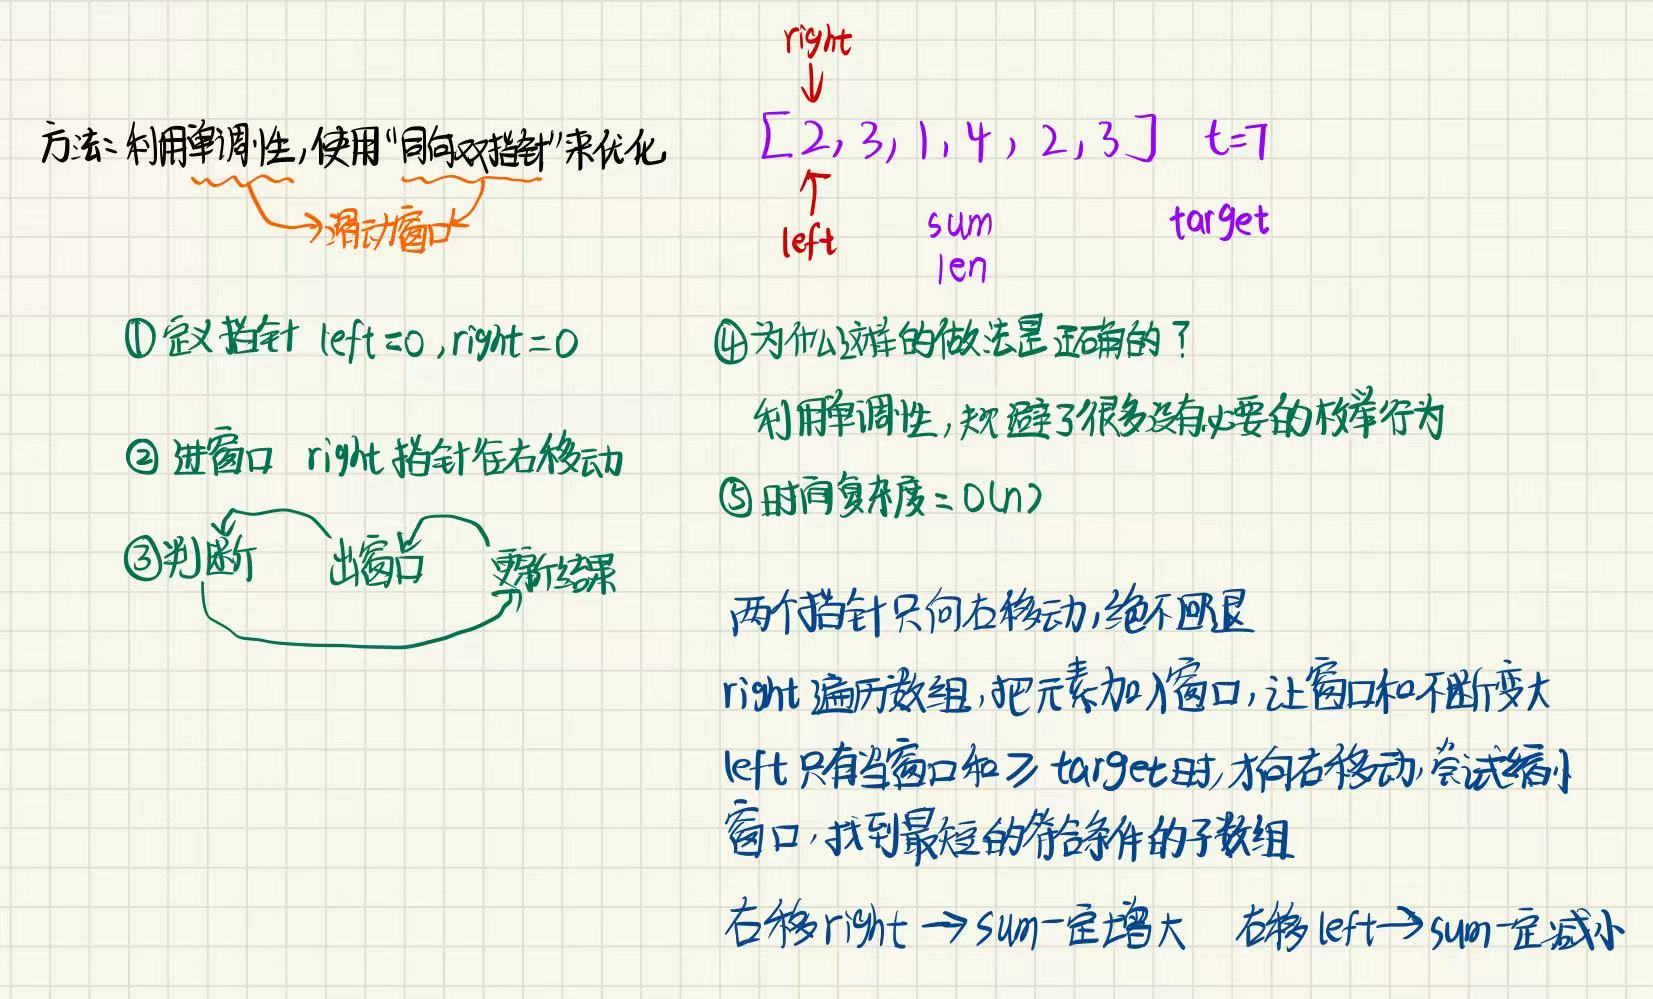 方法:利用单调性,使用"同向双指针"来优化
滑动窗口
right
[2, 3, 1, 4, 2, 3] t=7
left
sum
len
target
①定义指针 left=0, right=0
②进窗口 right指针往右移动
③判断 出窗口 更新结果
④为什么这样的做法是正确的?
利用单调性,规避了很多没有必要的枚举行为
⑤时间复杂度=O(n)
两个指针只向右移动,绝不回退
right遍历数组,把元素加入窗口,让窗口和不断变大
left只有当窗口和≥target时,才向右移动,尝试缩小
窗口,找到最短的符合条件的子数组
右移right→sum一定增大 右移left→sum一定减小